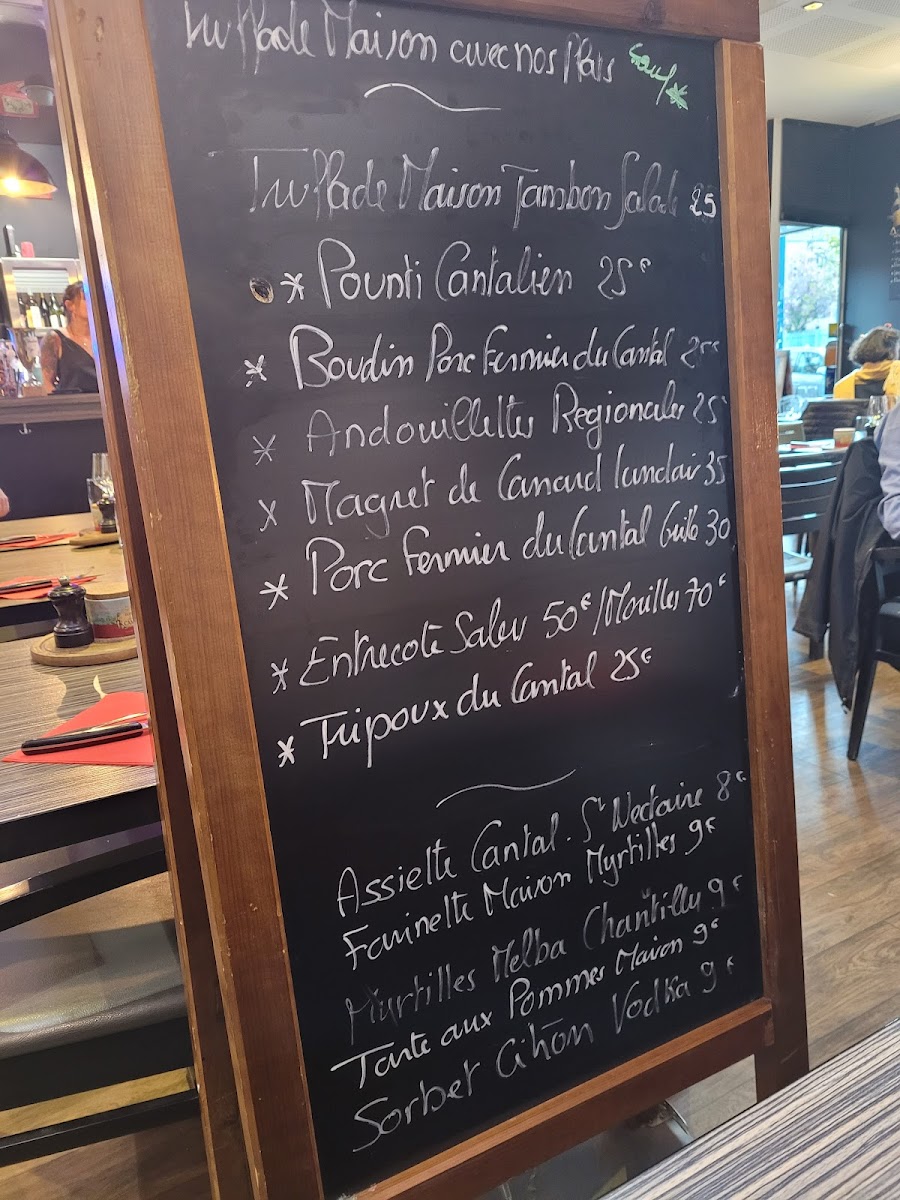 Truffade Maison avec nos Plats sauf *
Truffade Maison Jambon Salade 25
* Pounti Cantalien 25€
* Boudin Porc Fermier du Cantal 25€
* Andouillettes Regionales 25€
* Magret de Canard Landais 35
* Porc Fermier du Cantal Grillé 30
* Entrecote Saler 50€ / Morilles 70€
* Tripoux du Cantal 25€
Assiette Cantal - St Nectaire 8€
Farinette Maison Myrtilles 9€
Myrtilles Melba Chantilly 9€
Tarte aux Pommes Maison 9€
Sorbet Citron Vodka 9€